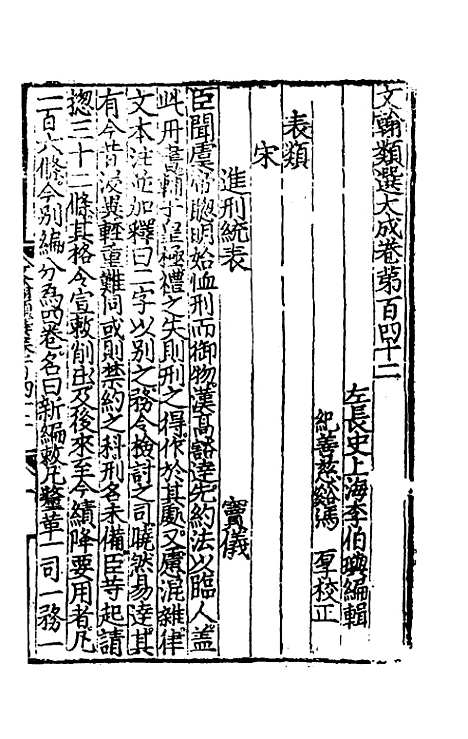 文翰類選大成卷第百四十二
左長史上海李伯璵編輯
紀善慈谿馮厚校正
表類
宋
進刑統表
竇儀
臣聞虞帝聰明始恤刑而御物漢高豁達先約法以臨人蓋
此丹書輔于皇極禮之失則刑之得作於其處又慮混雜律
文本注並加釋曰二字以別之務令檢討之司曉然易達其
有今昔浸異輕重難同或則禁約之科刑名未備臣等起請
揔三十二條其格令宣敕削出及後來至今續降要用者凡
一百六條今別編分為四卷名曰新編敕凡釐革一司一務一